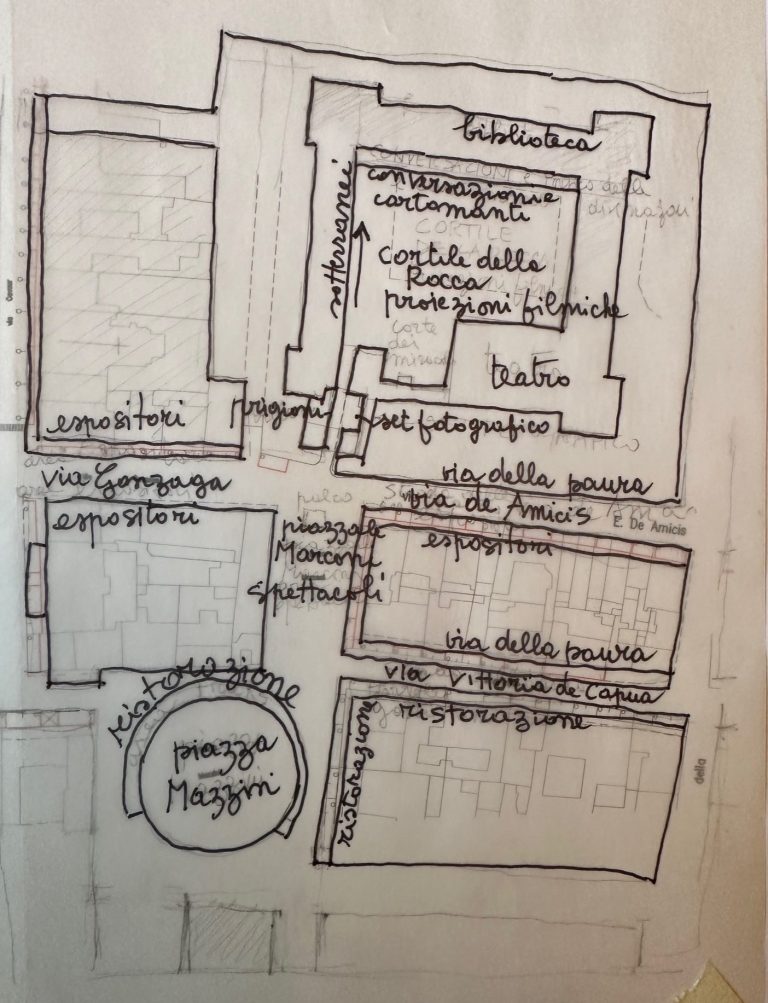 biblioteca
sotterranei
conversazioni e
cartomanti
cortile della
Rocca
proiezioni filmiche
teatro
espositori
prigioni
set fotografico
via della paura
via Gonzaga
via de Amicis
E. De Amicis
espositori
piazzale
Marconi
spettacoli
espositori
via della paura
via Vittoria de Capua
ristorazione
ristorazione
ristorazione
piazza
Mazzini
della